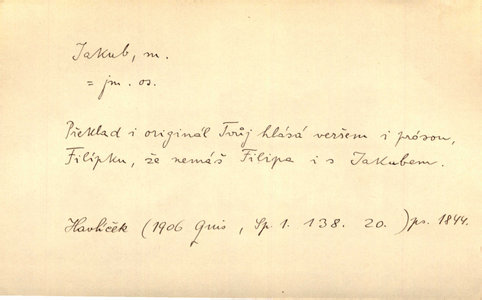 Jakub, m.
= jm. os.
Překlad i originál Tvůj hlásá veršem i prósou,
Filípku, že nemáš Filipa i s Jakubem.
Havlíček (1906 Quis, Sp. 1. 138. 20.) ps. 1844.